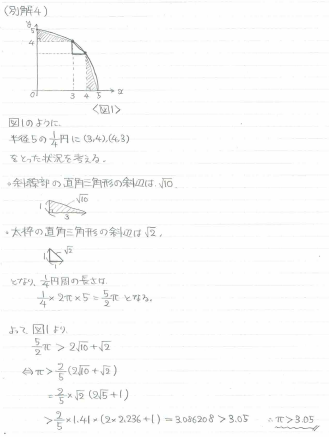 (別解4)
y
5
4
0 3 4 5 x
<図1>
図1のように、
半径5の1/4円に(3,4),(4,3)
をとった状況を考える。
・斜線部の直角三角形の斜辺は√10.
1 √10
3
・太枠の直角三角形の斜辺は√2.
1 √2
1
となり、1/4円周の長さは
1/4×2π×5=5/2π となる。
よって図1より、
5/2π > 2√10+√2
⇔π> 2/5(2√10+√2)
= 2/5×√2(2√5+1)
> 2/5×1.41×(2×2.236+1) = 3.086208 > 3.05 ∴π>3.05